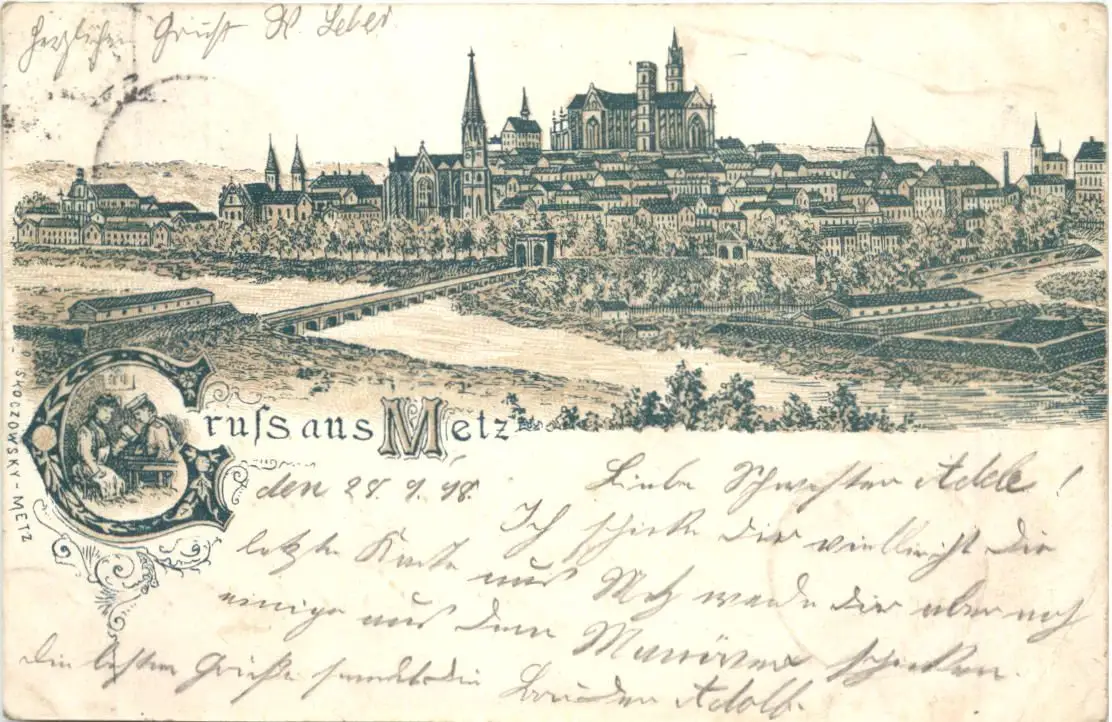 Herzlichen Gruß W. Leber
Gruss aus Metz
SKOCZOWSKY - METZ
den 28. 9. 98.
Liebe Schwester Adele!
Ich schicke Dir vielleicht die
letzte Karte aus Metz werde Dir aber noch
einige aus dem Manöver schicken.
Die besten Grüße sendet die
Bruder Adolf.